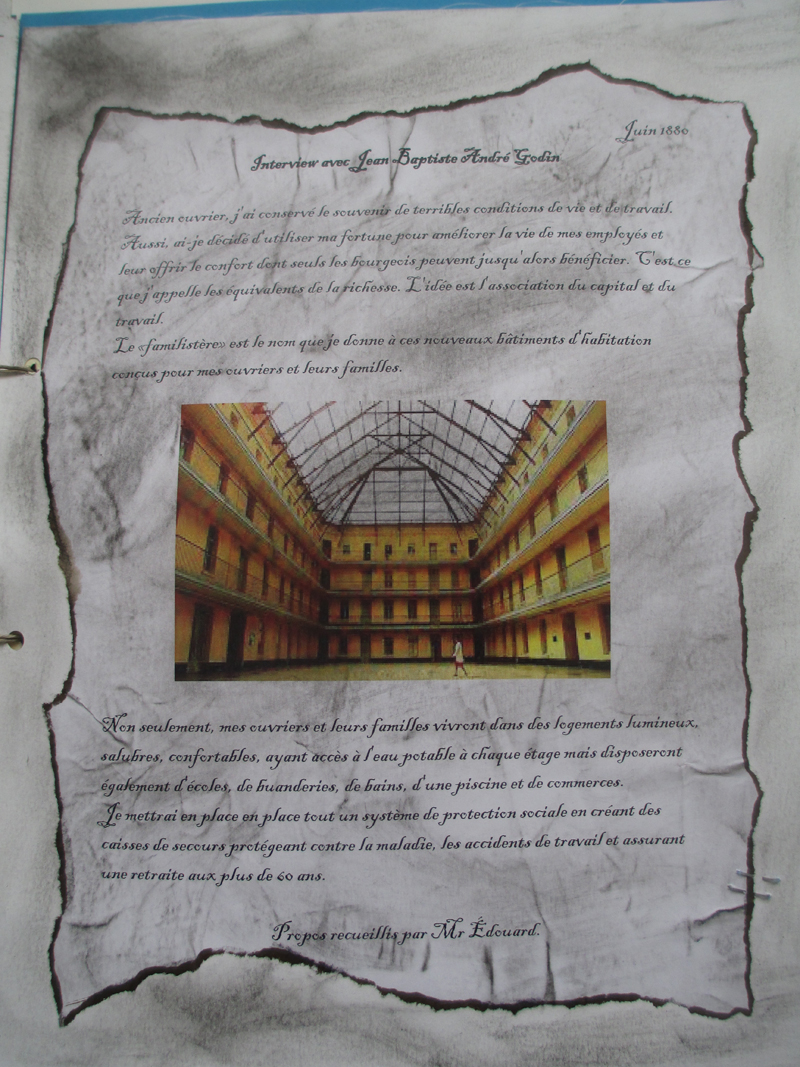 Juin 1880
Interview avec Jean Baptiste André Godin
Ancien ouvrier, j'ai conservé le souvenir de terribles conditions de vie et de travail.
Aussi, ai-je décidé d'utiliser ma fortune pour améliorer la vie de mes employés et
leur offrir le confort dont seuls les bourgeois peuvent jusqu'alors bénéficier. C'est ce
que j'appelle les équivalents de la richesse. L'idée est l'association du capital et du
travail.
Le «familistère» est le nom que je donne à ces nouveaux bâtiments d'habitation
conçus pour mes ouvriers et leurs familles.
Non seulement, mes ouvriers et leurs familles vivront dans des logements lumineux,
salubres, confortables, ayant accès à l'eau potable à chaque étage mais disposeront
également d'écoles, de buanderies, de bains, d'une piscine et de commerces.
Je mettrai en place en place tout un système de protection sociale en créant des
caisses de secours protégeant contre la maladie, les accidents de travail et assurant
une retraite aux plus de 60 ans.
Propos recueillis par Mr Édouard.